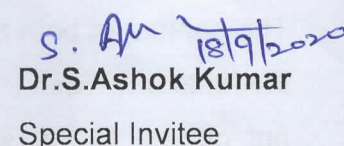 S. 18/9/2020
Dr.S.Ashok Kumar
Special Invitee